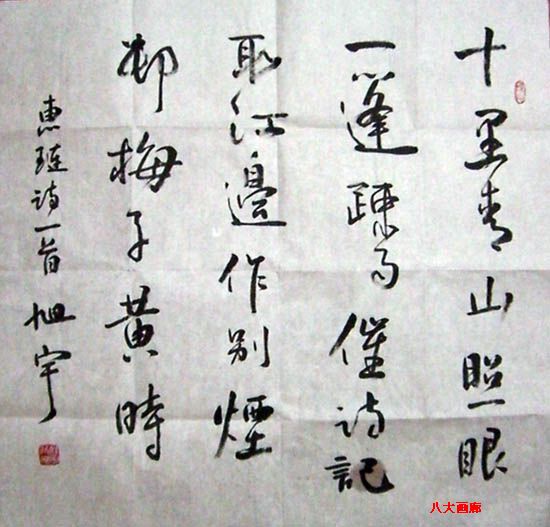 十里青山照眼
一篷踈雨催诗記
取江邊作别煙
邨梅子黄時
惠璉诗一首 旭宇
八大画廊